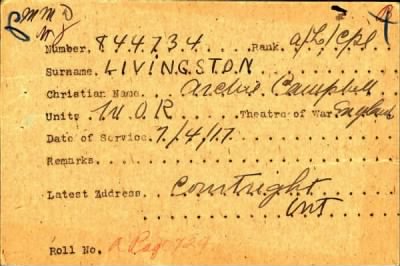 MMD
Number. 844734 Rank. a/L/Cpl
Surname. LIVINGSTON
Christian Name. Archie Campbell
Unit. W.O.R Theatre of War. England
Date of Service. 7/4/17
Remarks.
Latest Address. Courtright
Ont
Roll No. a Page